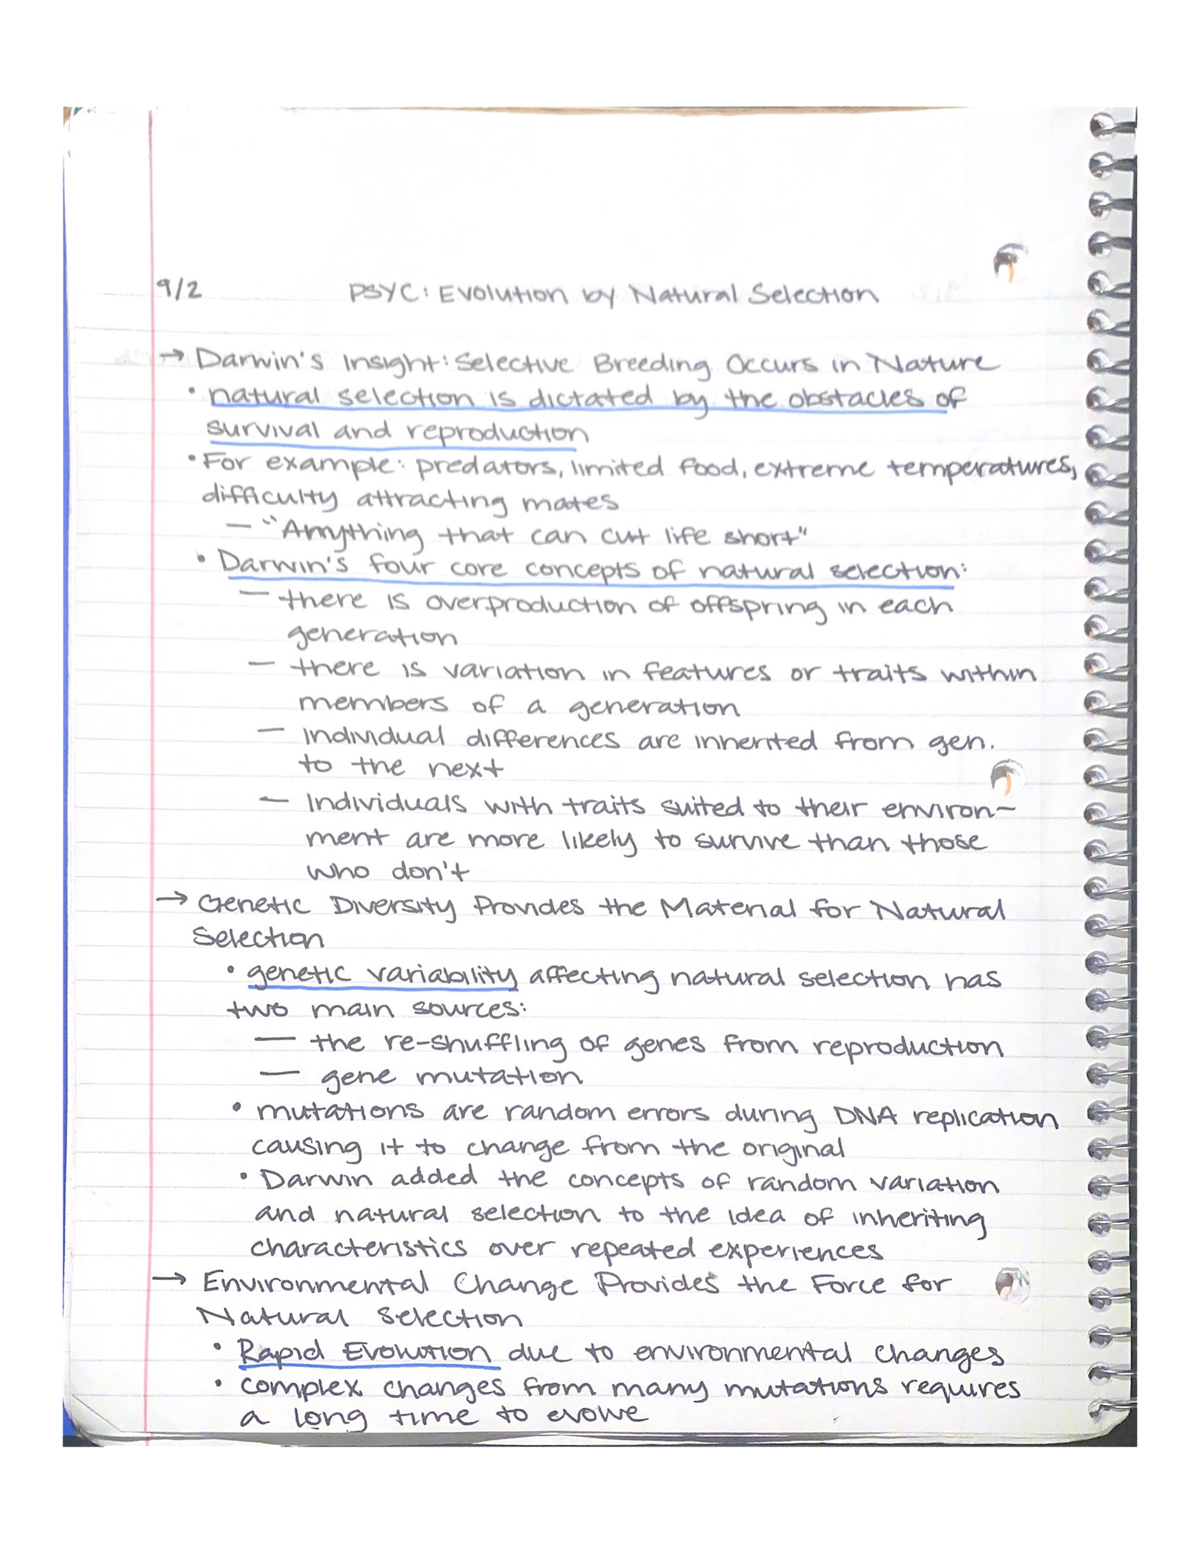 9/2 PSYC: Evolution by Natural Selection
→ Darwin's Insight: Selective Breeding Occurs in Nature
• natural selection is dictated by the obstacles of
survival and reproduction
• For example: predators, limited food, extreme temperatures,
difficulty attracting mates
— "Anything that can cut life short"
• Darwin's four core concepts of natural selection:
— there is overproduction of offspring in each
generation
— there is variation in features or traits within
members of a generation
— individual differences are inherited from gen.
to the next
— Individuals with traits suited to their environ-
ment are more likely to survive than those
who don't
→ Genetic Diversity Provides the Material for Natural
Selection
• genetic variability affecting natural selection has
two main sources:
— the re-shuffling of genes from reproduction
— gene mutation
• mutations are random errors during DNA replication
causing it to change from the original
• Darwin added the concepts of random variation
and natural selection to the idea of inheriting
characteristics over repeated experiences
→ Environmental Change Provides the Force for
Natural Selection
• Rapid Evolution due to environmental changes
• complex changes from many mutations requires
a long time to evolve